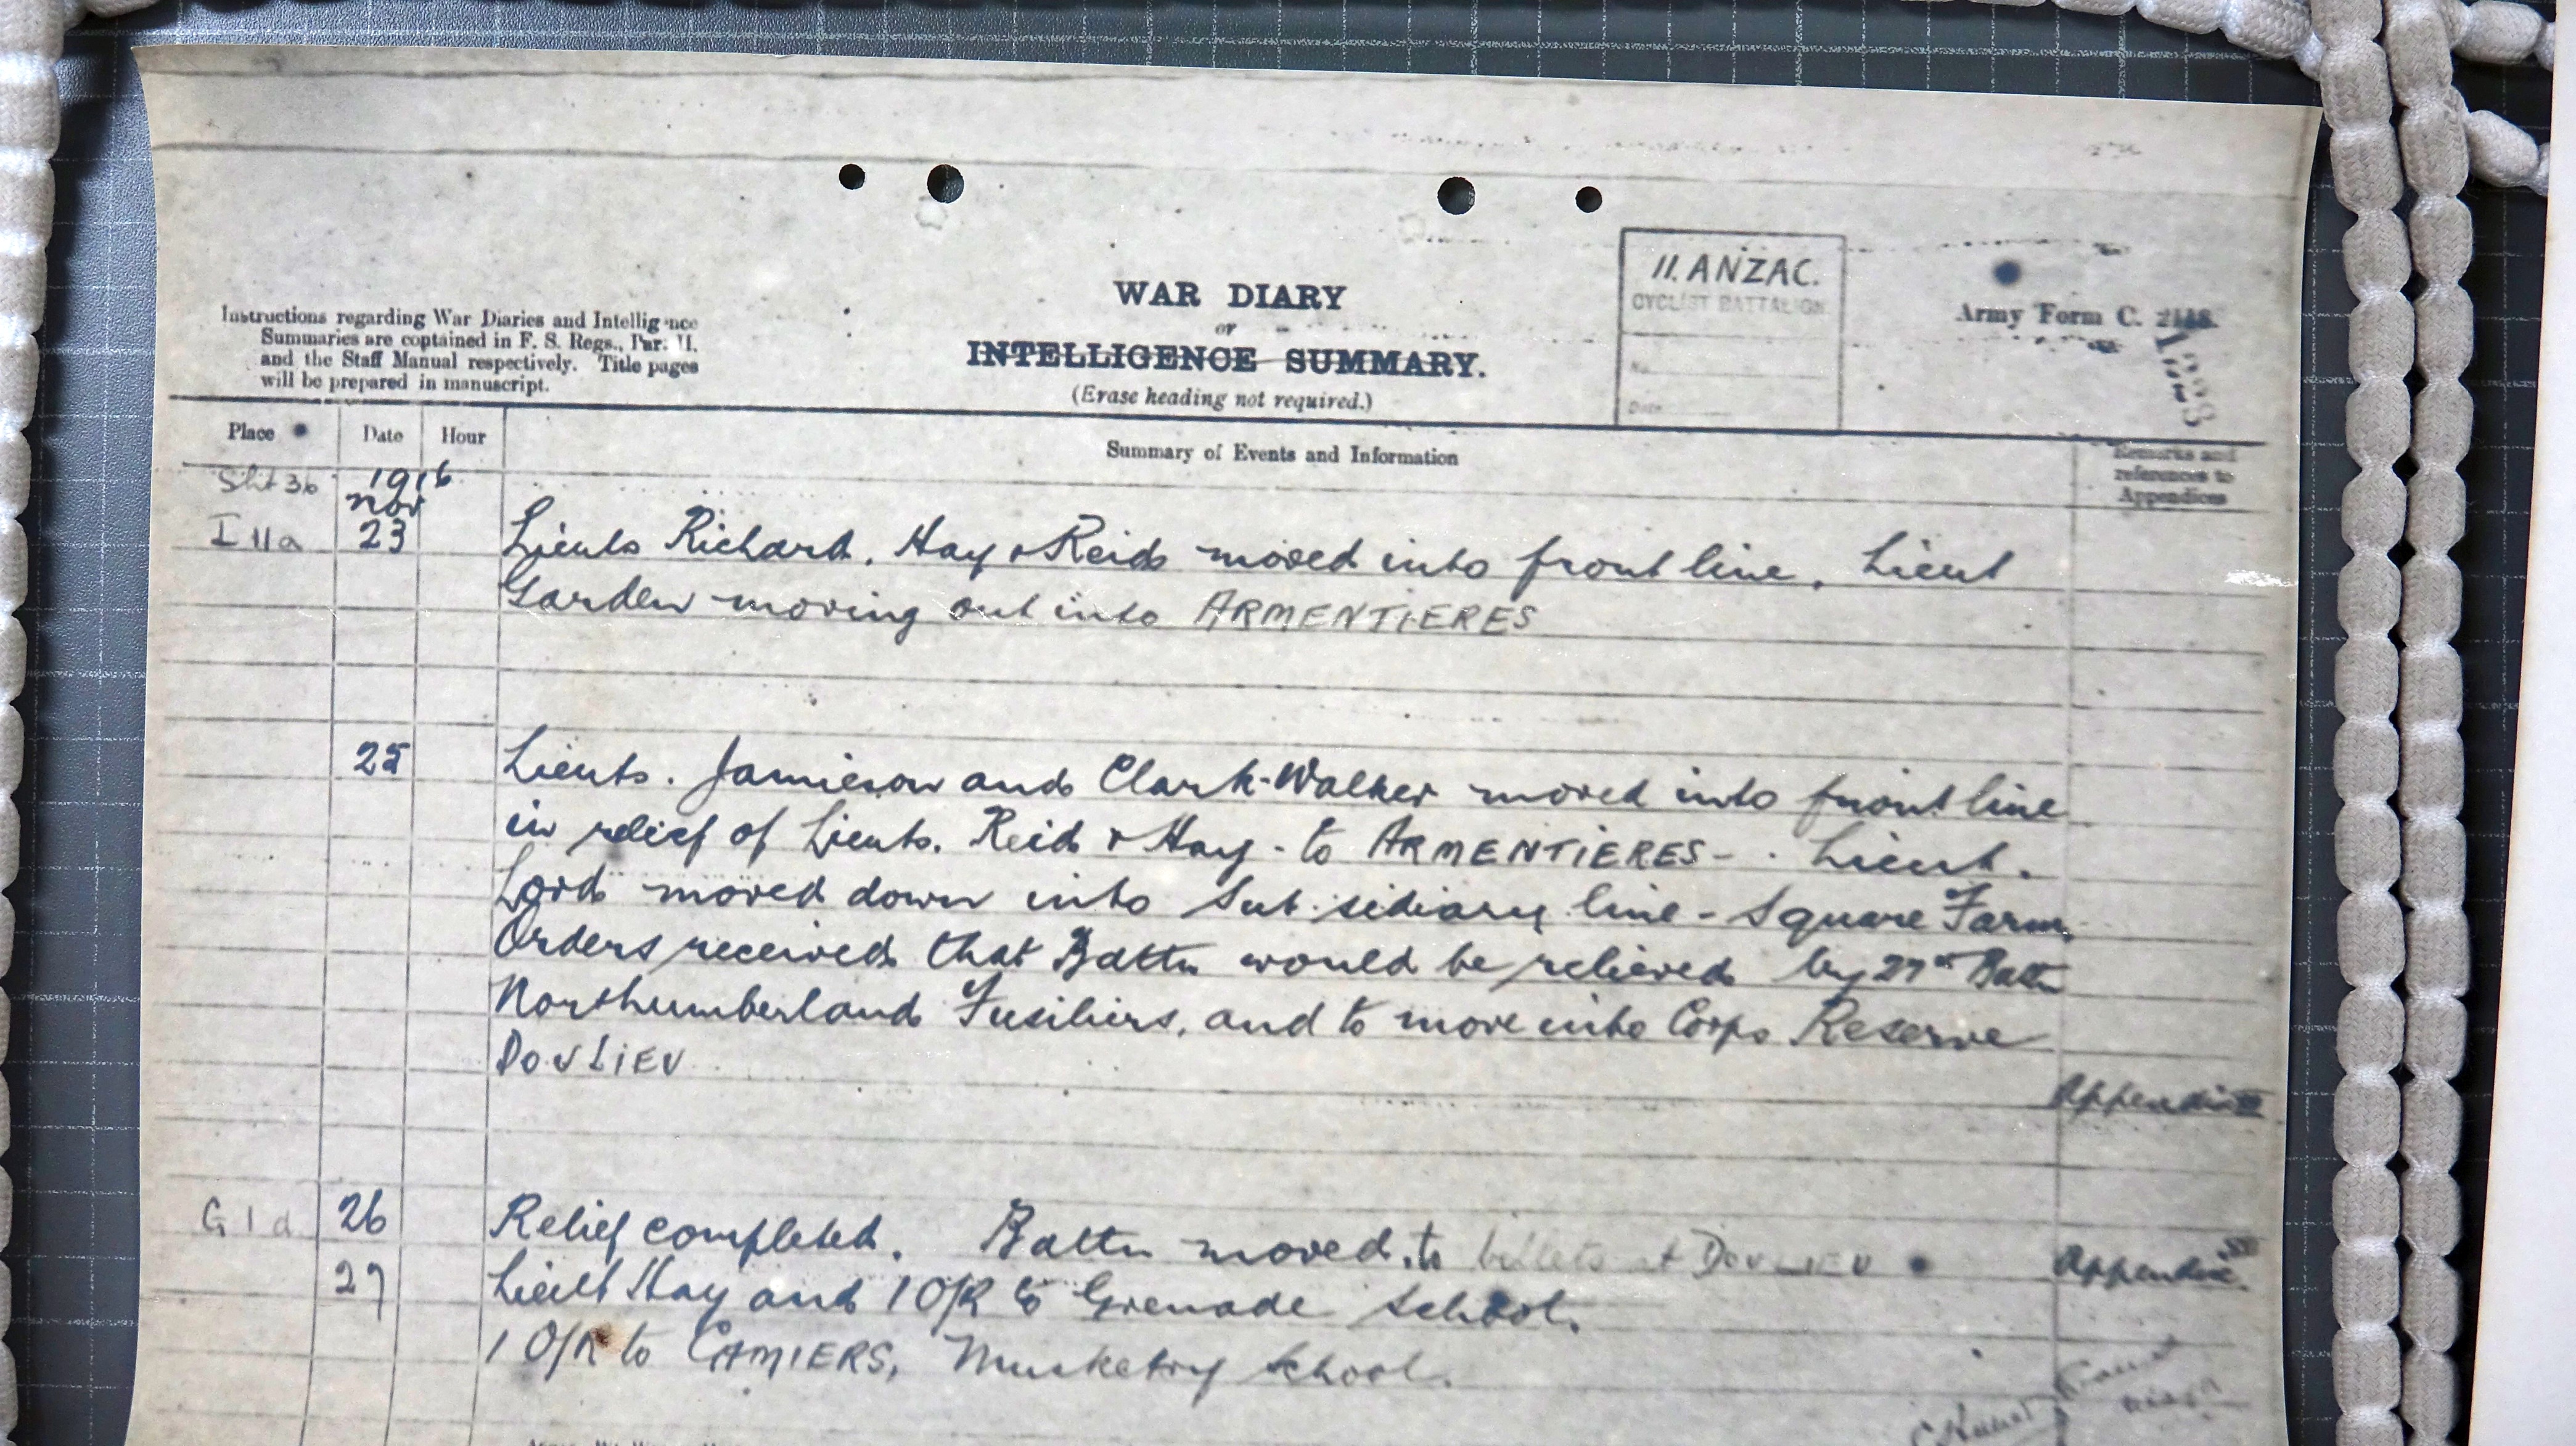 II. ANZAC.
CYCLIST BATTALION
No.
Date
WAR DIARY
or
INTELLIGENCE SUMMARY.
(Erase heading not required.)
Army Form C. 2118.
Instructions regarding War Diaries and Intelligence
Summaries are contained in F. S. Regs., Par. II.
and the Staff Manual respectively. Title pages
will be prepared in manuscript.
Place Date Hour Summary of Events and Information Remarks and
references to
Appendices
Sht 36 1916
Nov
I 11a 23 Lieuts Richard, Hay & Reid moved into front line. Lieut
Garden moving out into ARMENTIERES
25 Lieuts. Jamieson and Clark-Walker moved into front line
in relief of Lieuts. Reid & Hay - to ARMENTIERES - . Lieut.
Lord moved down into Subsidiary line - Square Farm.
Orders received that Battn would be relieved by 27th Battn
Northumberland Fusiliers, and to move into Corps Reserve
DOVLIEV
Appendix
G 1 d 26 Relief completed. Battn moved to billets at DOVLIEV Appendix
27 Lieut Hay and 1 O/R to Grenade School.
1 O/R to CAMIERS, Musketry School.